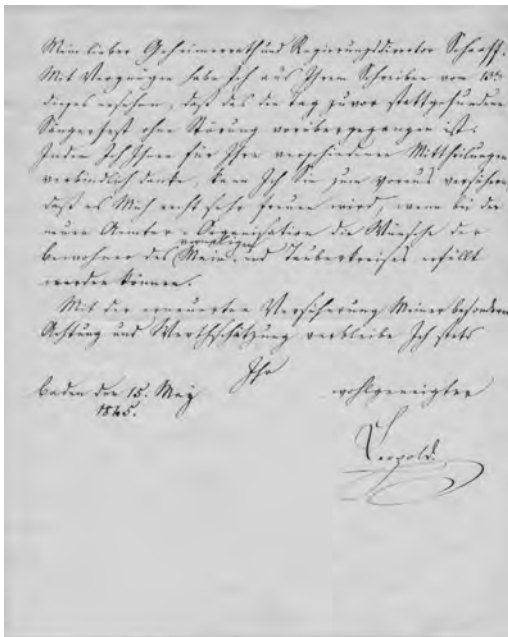 Mein lieber Geheimerrath und Regierungsdirector Schaaff.
Mit Vergnügen habe Ich aus Ihrem Schreiben vom 13ten
dieses ersehen, daß das die Tag zuvor stattgefundene
Sängerfest ohne Störung vorübergegangen ist.
Indem Ich Ihnen für Ihre verschiedenen Mittheilungen
verbindlich danke, kann Ich Sie zum voraus versichern
daß es Mich recht sehr freuen wird, wenn bei der
neuen Aemter-Organisation die Wünsche der
Bewohner des vormaligen Main und Tauberkreises erfüllt
werden können.
Mit der erneuerten Versicherung Meiner besondern
Achtung und Werthschätzung verbleibe Ich stets
Ihr
Baden den 15. May wohlgeneigter
1845.
Leopold.